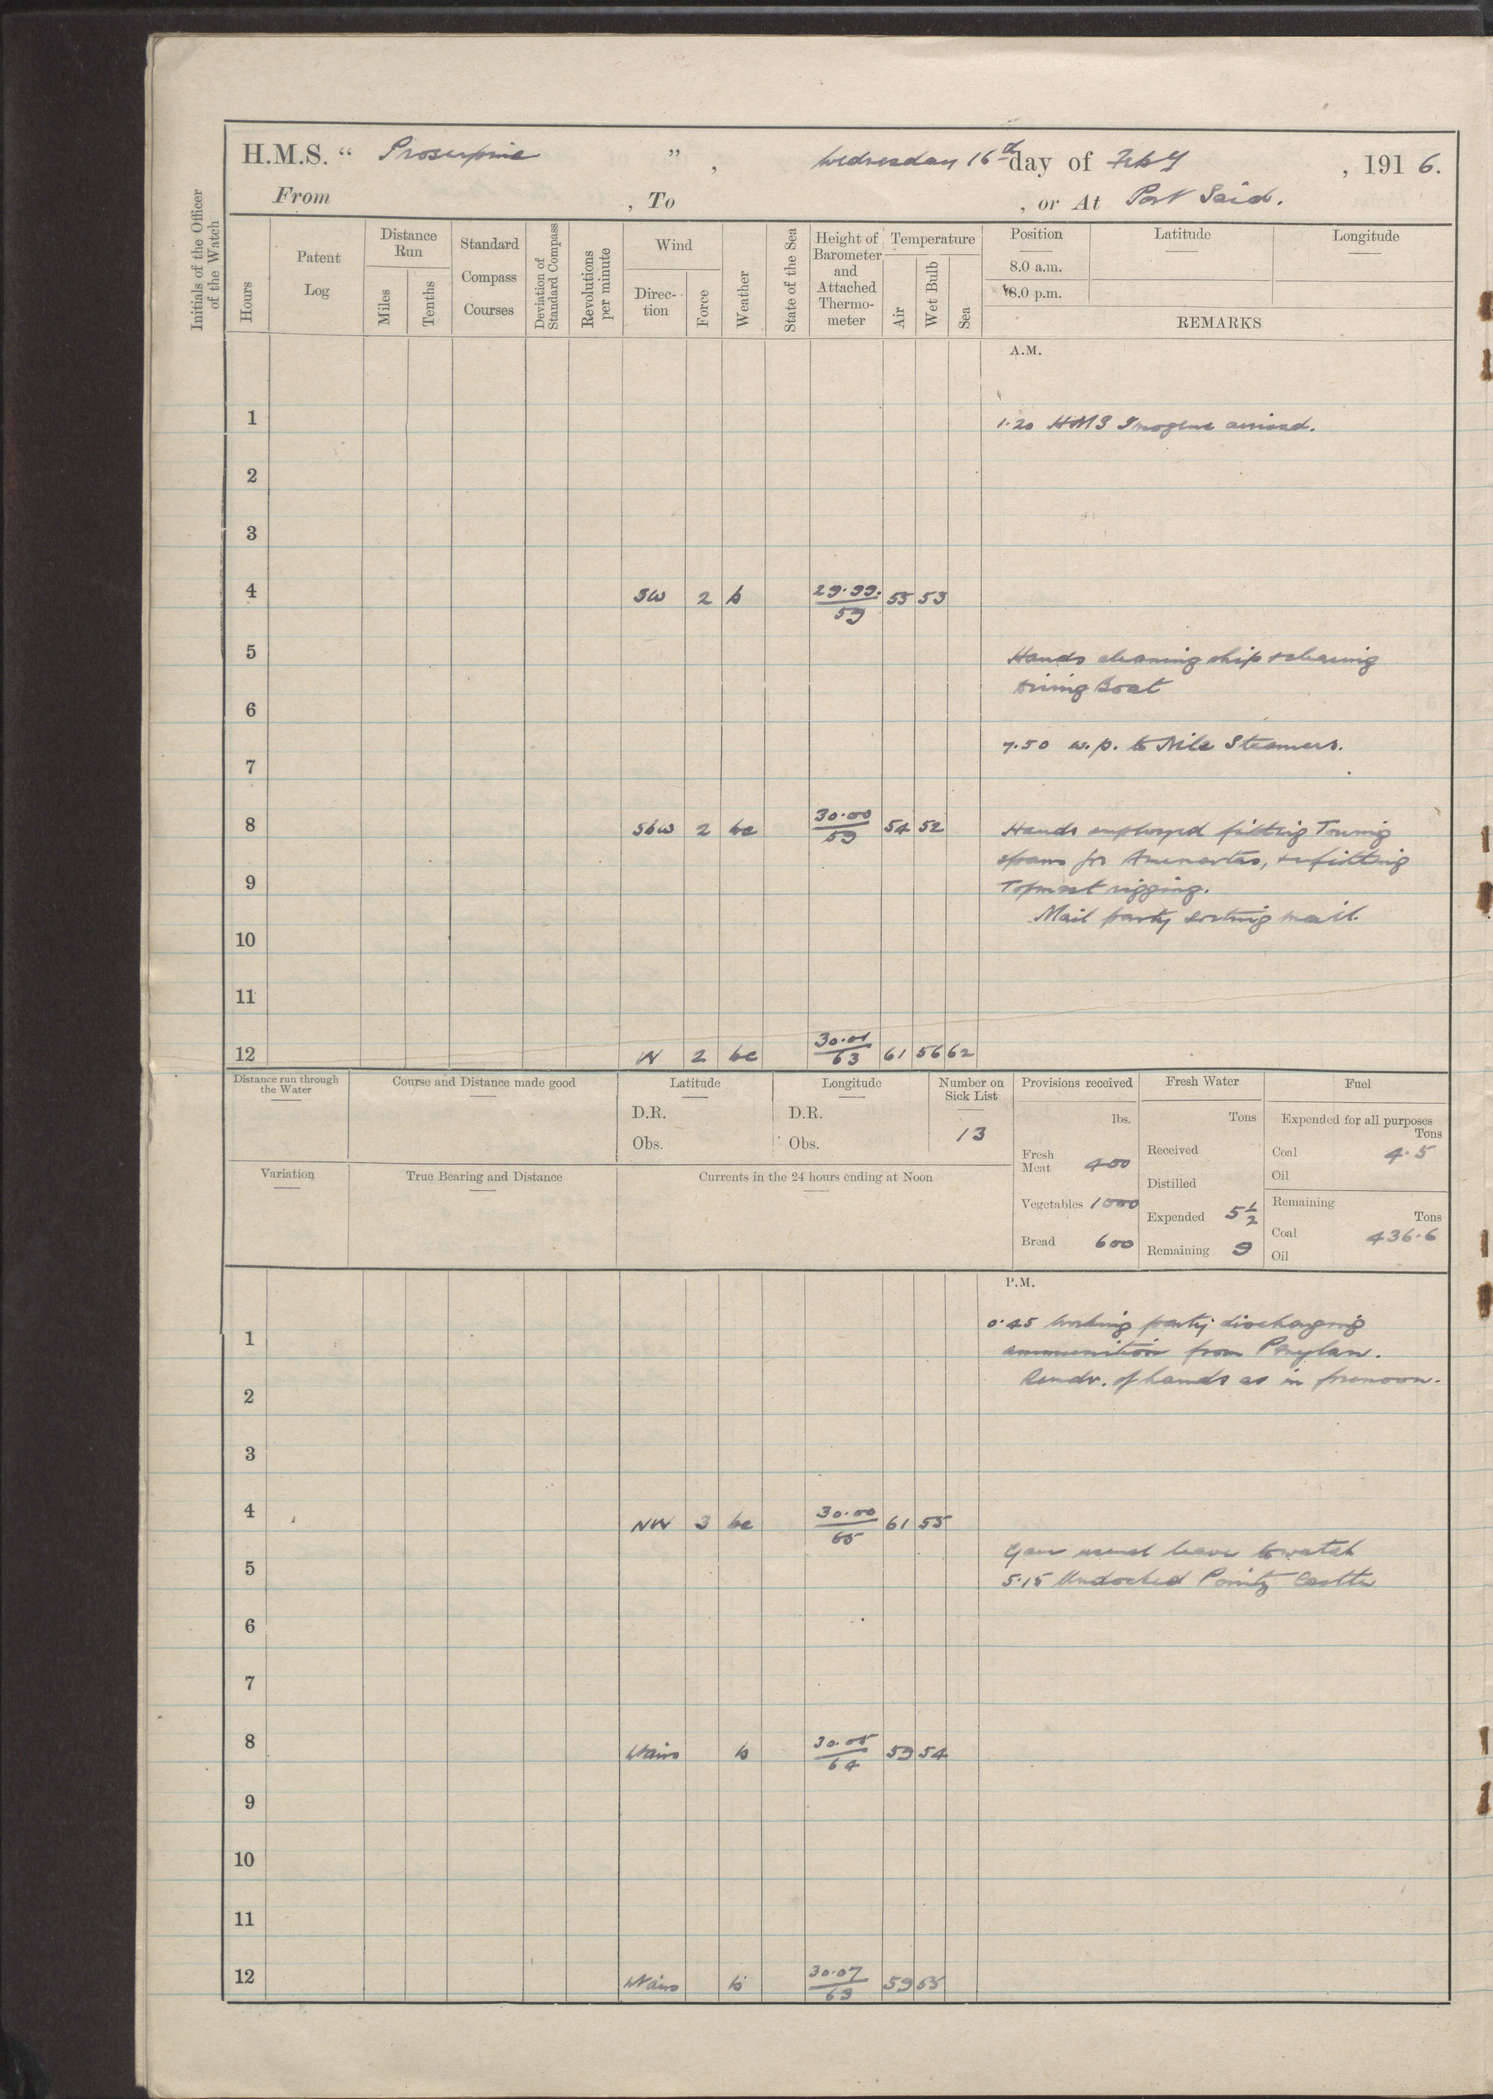 H.M.S. " Proserpine ", Wednesday 16th day of Feby, 1916.
From , To , or At Port Said.
Initials of the Officer of the Watch
Hours
Patent Log
Distance Run
Miles
Tenths
Standard Compass Courses
Deviation of Standard Compass
Revolutions per minute
Wind
Direction
Force
Weather
State of the Sea
Height of Barometer and Attached Thermometer
Temperature
Air
Wet Bulb
Sea
Position Latitude Longitude
8.0 a.m.
8.0 p.m.
REMARKS
A.M.
1 1.20 HMS Imogene arrived.
2
3
4 SW 2 b 29.99 55 53
59
5 Hands cleaning ship & clearing
Boat
6
7.50 w.p. to Nile Steamers.
7
8 SbW 2 bc 30.00 54 52 Hands employed fitting Towing
59
spans for Amenartas, & refitting
9 Topmast rigging.
Mail party sorting mail.
10
11
12 N 2 bc 30.01 61 56 62
63
Distance run through the Water
Course and Distance made good
Latitude
D.R.
Obs.
Longitude
D.R.
Obs.
Number on Sick List
13
Provisions received
lbs.
Fresh Meat 400
Vegetables 1000
Bread 600
Fresh Water
Tons
Received
Distilled
Expended 5 1/2
Remaining 9
Fuel
Expended for all purposes
Tons
Coal 4.5
Oil
Remaining
Tons
Coal 436.6
Oil
Variation
True Bearing and Distance
Currents in the 24 hours ending at Noon
P.M.
0.45 Working party discharging
1 ammunition from Penylan.
Remdr. of hands as in forenoon.
2
3
4 NW 3 bc 30.00 61 55
65
Gave usual leave to watch
5 5.15 Undocked Castle
6
7
8 b 30.05 59 54
64
9
10
11
12 b 30.07 59 55
63